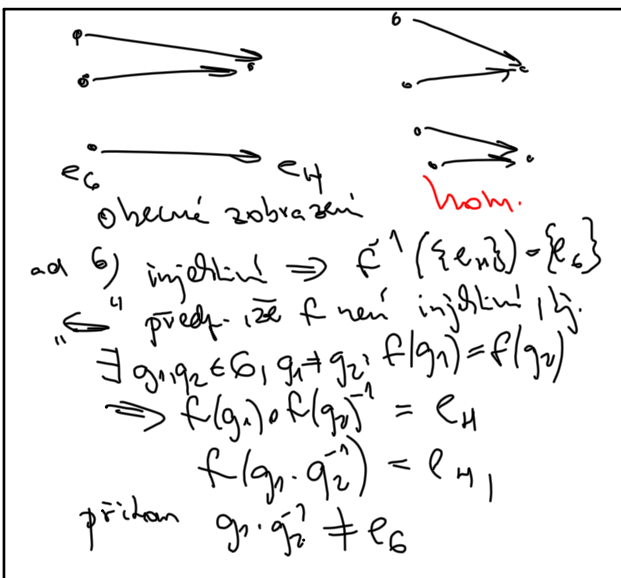 e_G e_H
obecné zobrazení hom.
ad 6) injektivní ⇒ f^{-1}({e_H}) = {e_G}
"⇐" předp. že f není injektivní, tj.
∃ g_1, g_2 ∈ G, g_1 ≠ g_2, f(g_1) = f(g_2)
⇒ f(g_1) ∘ f(g_2)^{-1} = e_H
f(g_1 · g_2^{-1}) = e_H,
přitom g_1 · g_2^{-1} ≠ e_G